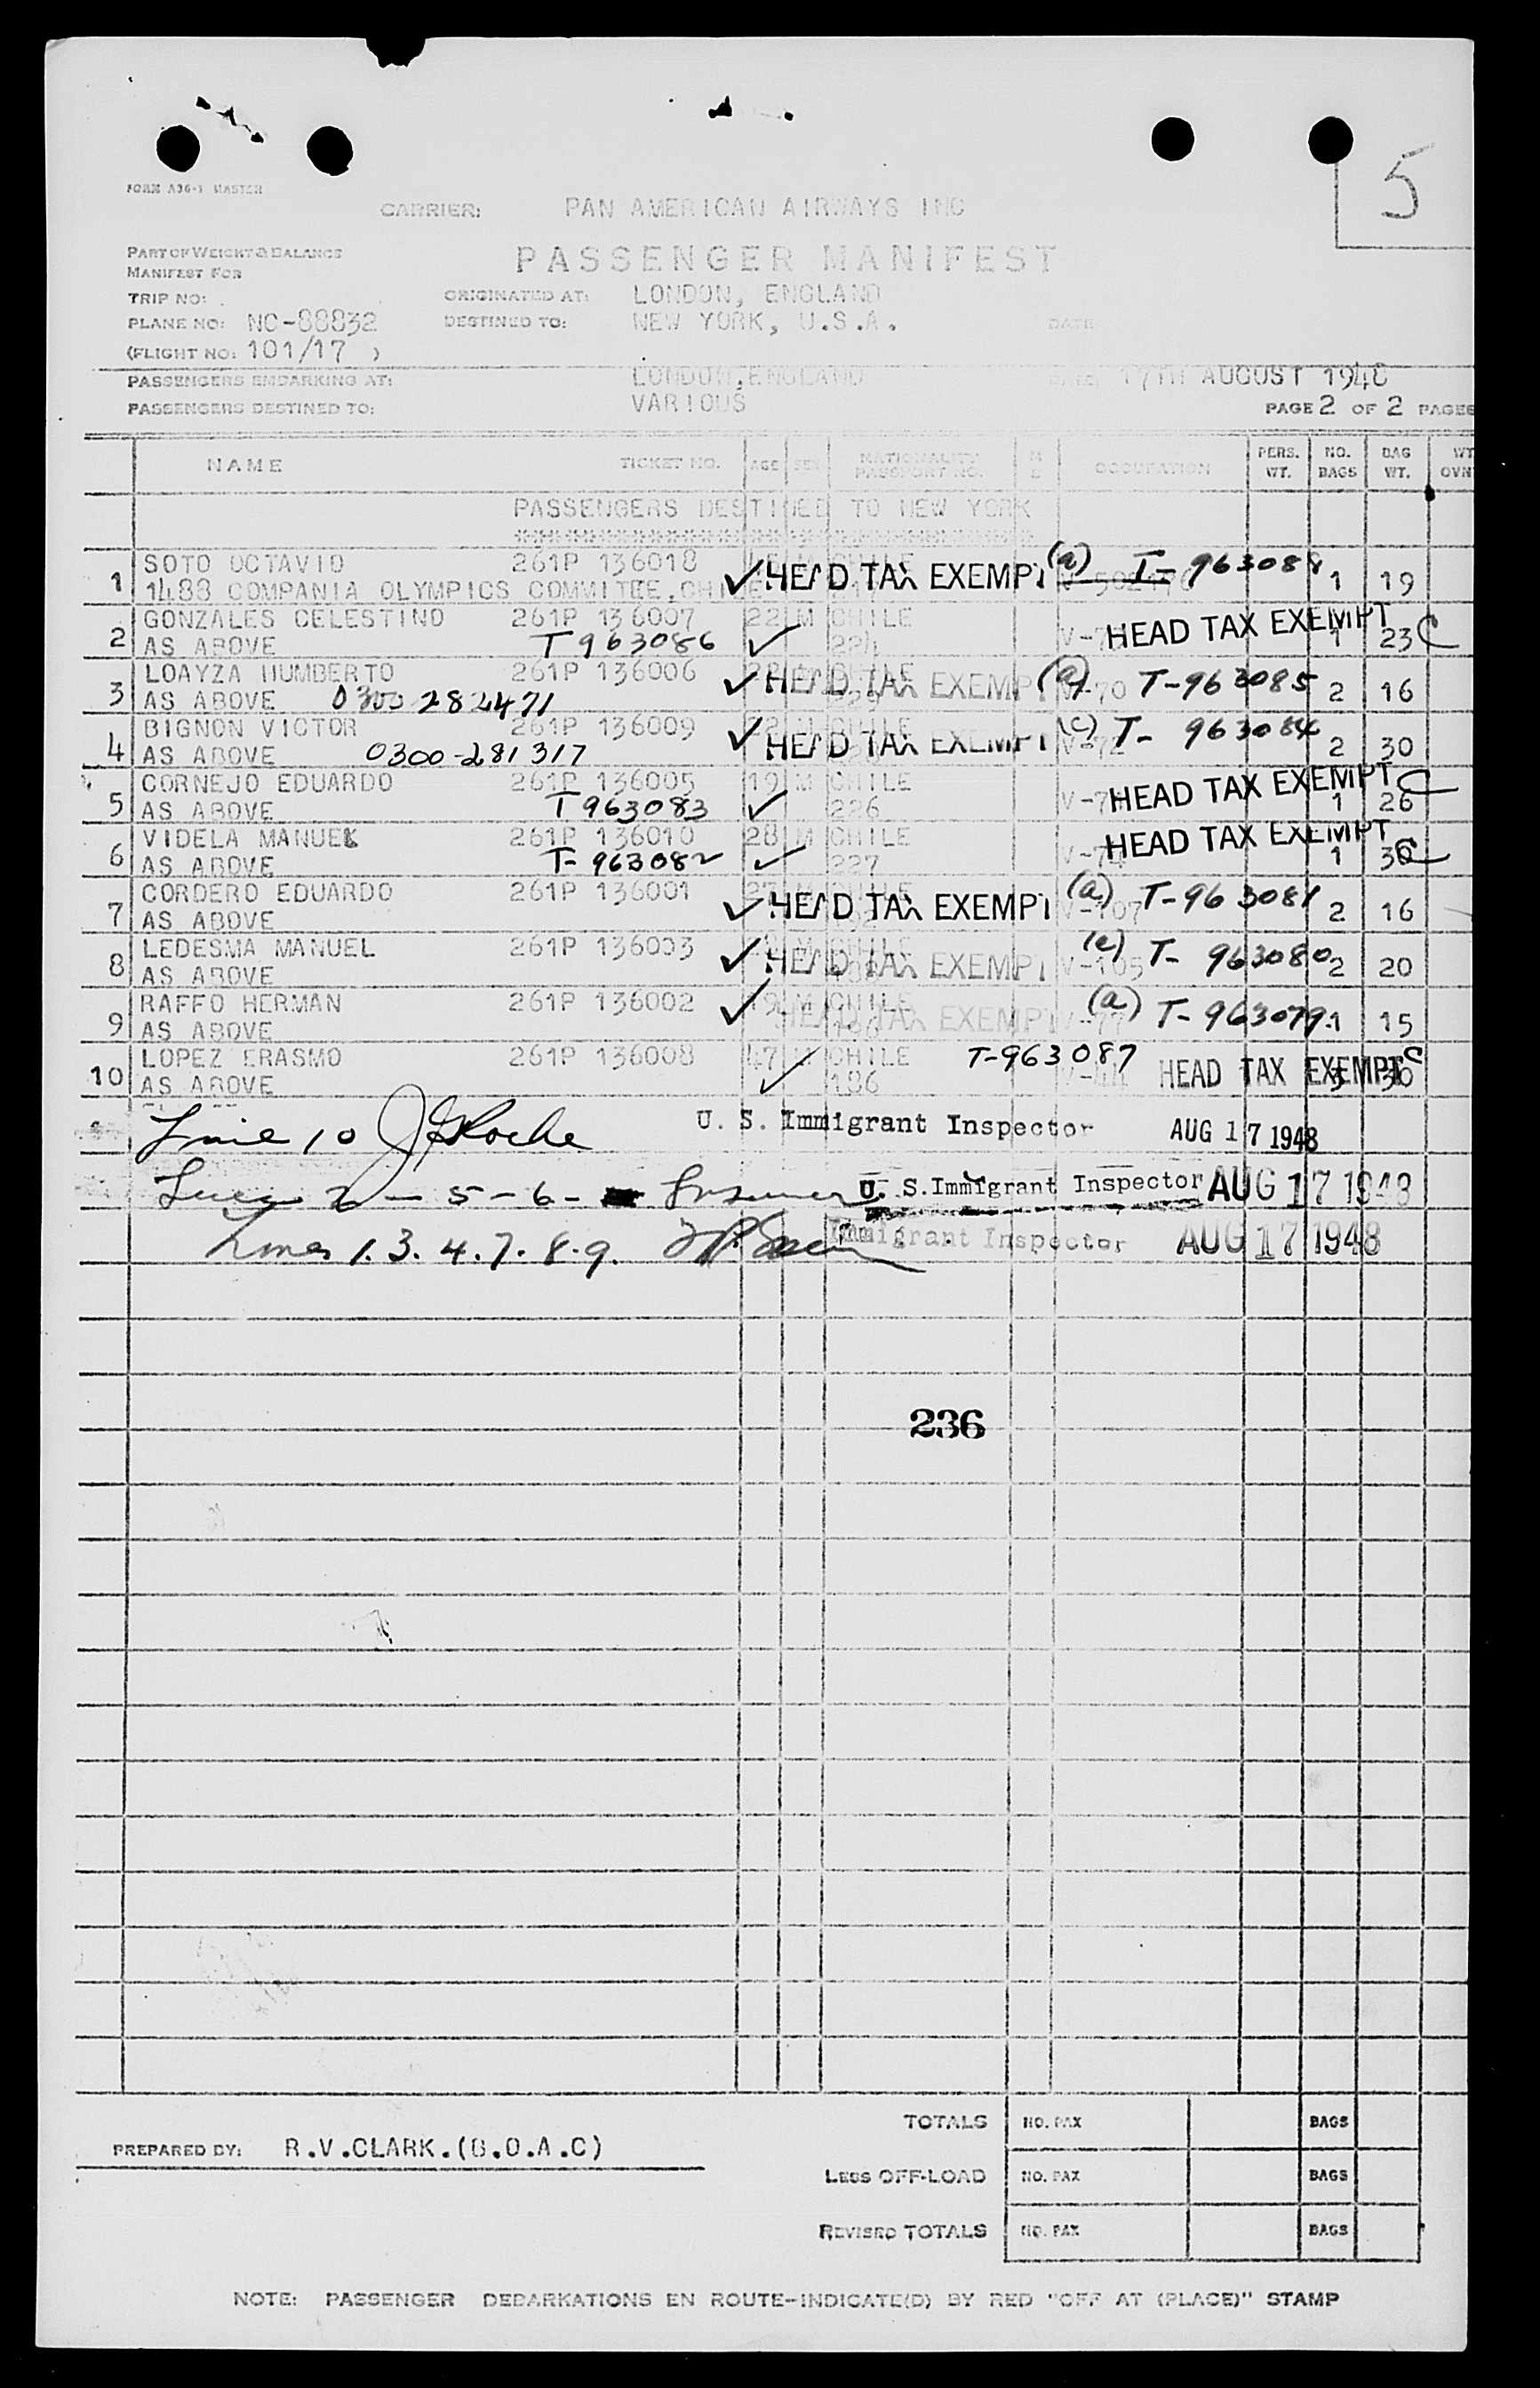 5
FORM A36-1 MASTER
CARRIER: PAN AMERICAN AIRWAYS INC
PART OF WEIGHT & BALANCE
MANIFEST FOR
PASSENGER MANIFEST
TRIP NO: ORIGINATED AT: LONDON, ENGLAND
PLANE NO: NC-88832 DESTINED TO: NEW YORK, U.S.A. DATE
(FLIGHT NO: 101/17 )
PASSENGERS EMBARKING AT: LONDON, ENGLAND DATE: 17TH AUGUST 1948
PASSENGERS DESTINED TO: VARIOUS PAGE 2 OF 2 PAGES
NAME TICKET NO. AGE SEX NATIONALITY PASSPORT NO. M E OCCUPATION PERS. WT. NO. BAGS BAG WT. WT
PASSENGERS DESTINED TO NEW YORK
1 SOTO OCTAVIO 261P 136018 M CHILE (a) T-963088
1488 COMPANIA OLYMPICS COMMITEE, CHILE HEAD TAX EXEMPT 1 19
2 GONZALES CELESTINO 261P 136007 22 M CHILE HEAD TAX EXEMPT
AS ABOVE T963086 224 1 23 C
3 LOAYZA HUMBERTO 261P 136006 CHILE HEAD TAX EXEMPT (a) T-963085
AS ABOVE 0300 282471 V-70 2 16
4 BIGNON VICTOR 261P 136009 22 M CHILE (c) T-963084
AS ABOVE 0300-281317 HEAD TAX EXEMPT 2 30
5 CORNEJO EDUARDO 261P 136005 19 M CHILE HEAD TAX EXEMPT C
AS ABOVE T963083 226 1 26
6 VIDELA MANUEL 261P 136010 28 M CHILE HEAD TAX EXEMPT C
AS ABOVE T-963082 227 1 30
7 CORDERO EDUARDO 261P 136001 27 M CHILE (a) T-963081
AS ABOVE HEAD TAX EXEMPT V-107 2 16
8 LEDESMA MANUEL 261P 136003 M CHILE T-963080
AS ABOVE HEAD TAX EXEMPT V-105 2 20
9 RAFFO HERMAN 261P 136002 19 M CHILE (a) T-963079
AS ABOVE HEAD TAX EXEMPT V-77 1 15
10 LOPEZ ERASMO 261P 136008 47 M CHILE T-963087 HEAD TAX EXEMPT C
AS ABOVE 186 V-44 30
Line 10 Roche U. S. Immigrant Inspector AUG 17 1948
Lines 2-5-6- U. S. Immigrant Inspector AUG 17 1948
Lines 1.3.4.7.8.9. Immigrant Inspector AUG 17 1948
236
TOTALS NO. PAX BAGS
PREPARED BY: R.V.CLARK.(B.O.A.C)
LESS OFF-LOAD NO. PAX BAGS
REVISED TOTALS NO. PAX BAGS
NOTE: PASSENGER DEBARKATIONS EN ROUTE-INDICATE(D) BY RED "OFF AT (PLACE)" STAMP